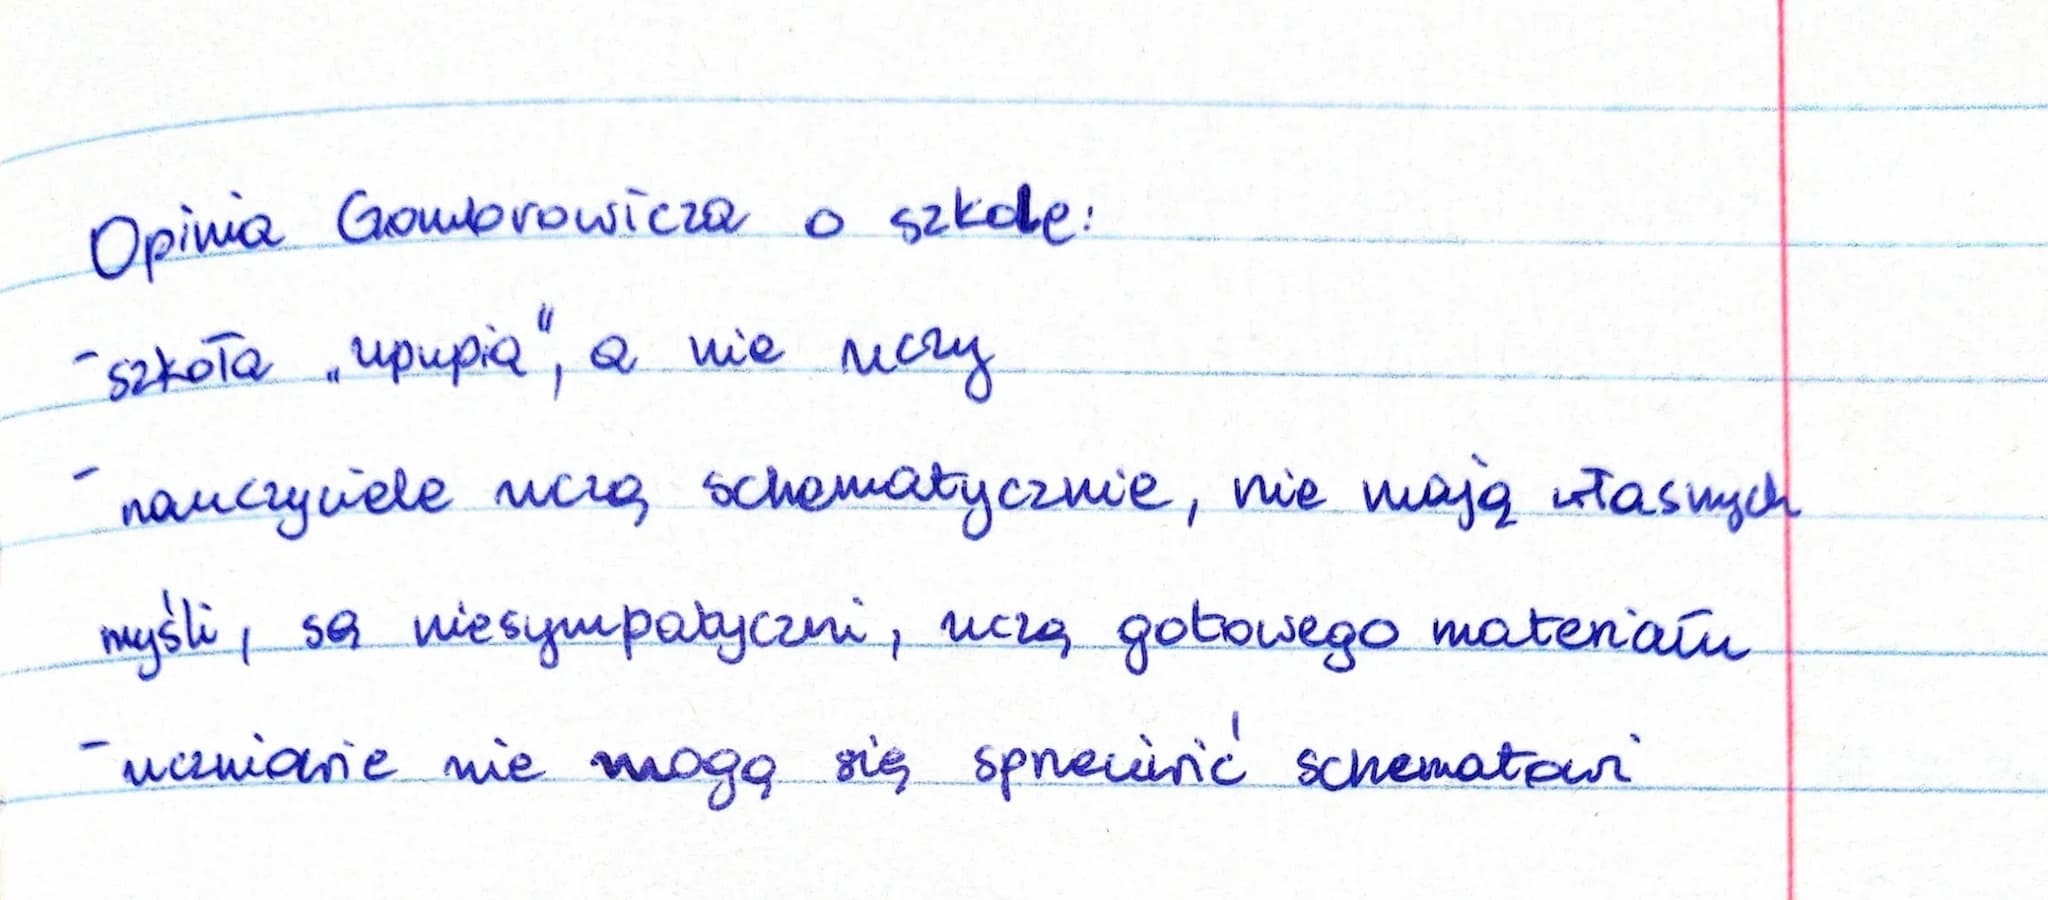 Opinia Gombrowicza o szkole:
- szkoła „upupia”, a nie uczy
- nauczyciele uczą schematycznie, nie mają własnych
myśli, są niesympatyczni, uczą gotowego materiału
- uczniowie nie mogą się sprzeciwić schematowi